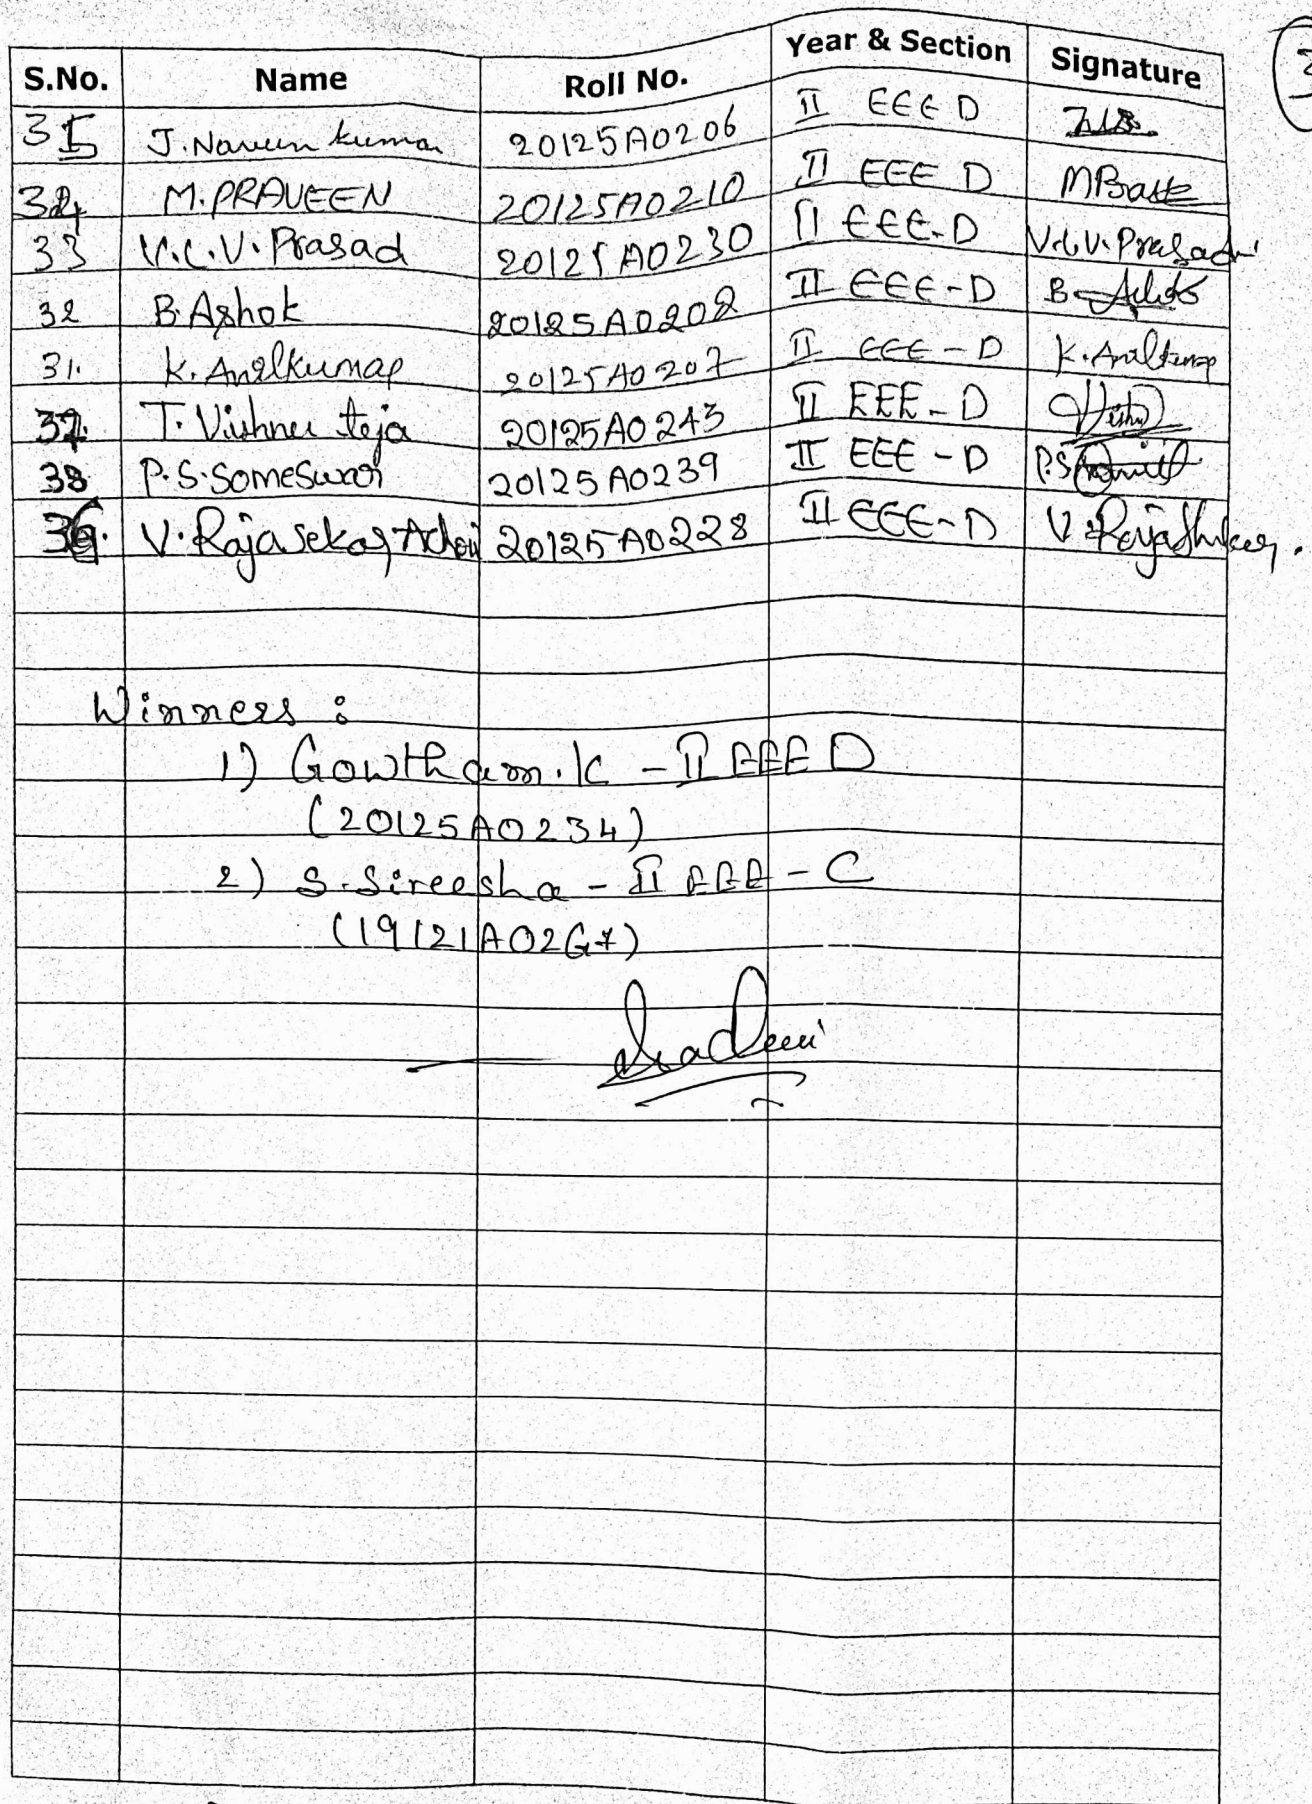 S.No. Name Roll No. Year & Section Signature
35 J. Naveen kumar 20125A0206 II EEE D
34 M. PRAVEEN 20125A0210 II EEE D
33 V.C.V. Prasad 20125A0230 II EEE-D V.C.V. Prasad
32 B. Ashok 20125A0202 II EEE-D B. Ashok
31. K. Anilkumar 20125A0207 II EEE-D K. Anilkumar
37. T. Vishnu teja 20125A0243 II EEE-D
38 P.S. Someswar 20125A0239 II EEE-D
36. V. Rajasekar Achari 20125A0228 II EEE-D
Winners :
1) Gowtham.K - II EEE D
(20125A0234)
2) S. Sireesha - II EEE - C
(19121A02G7)